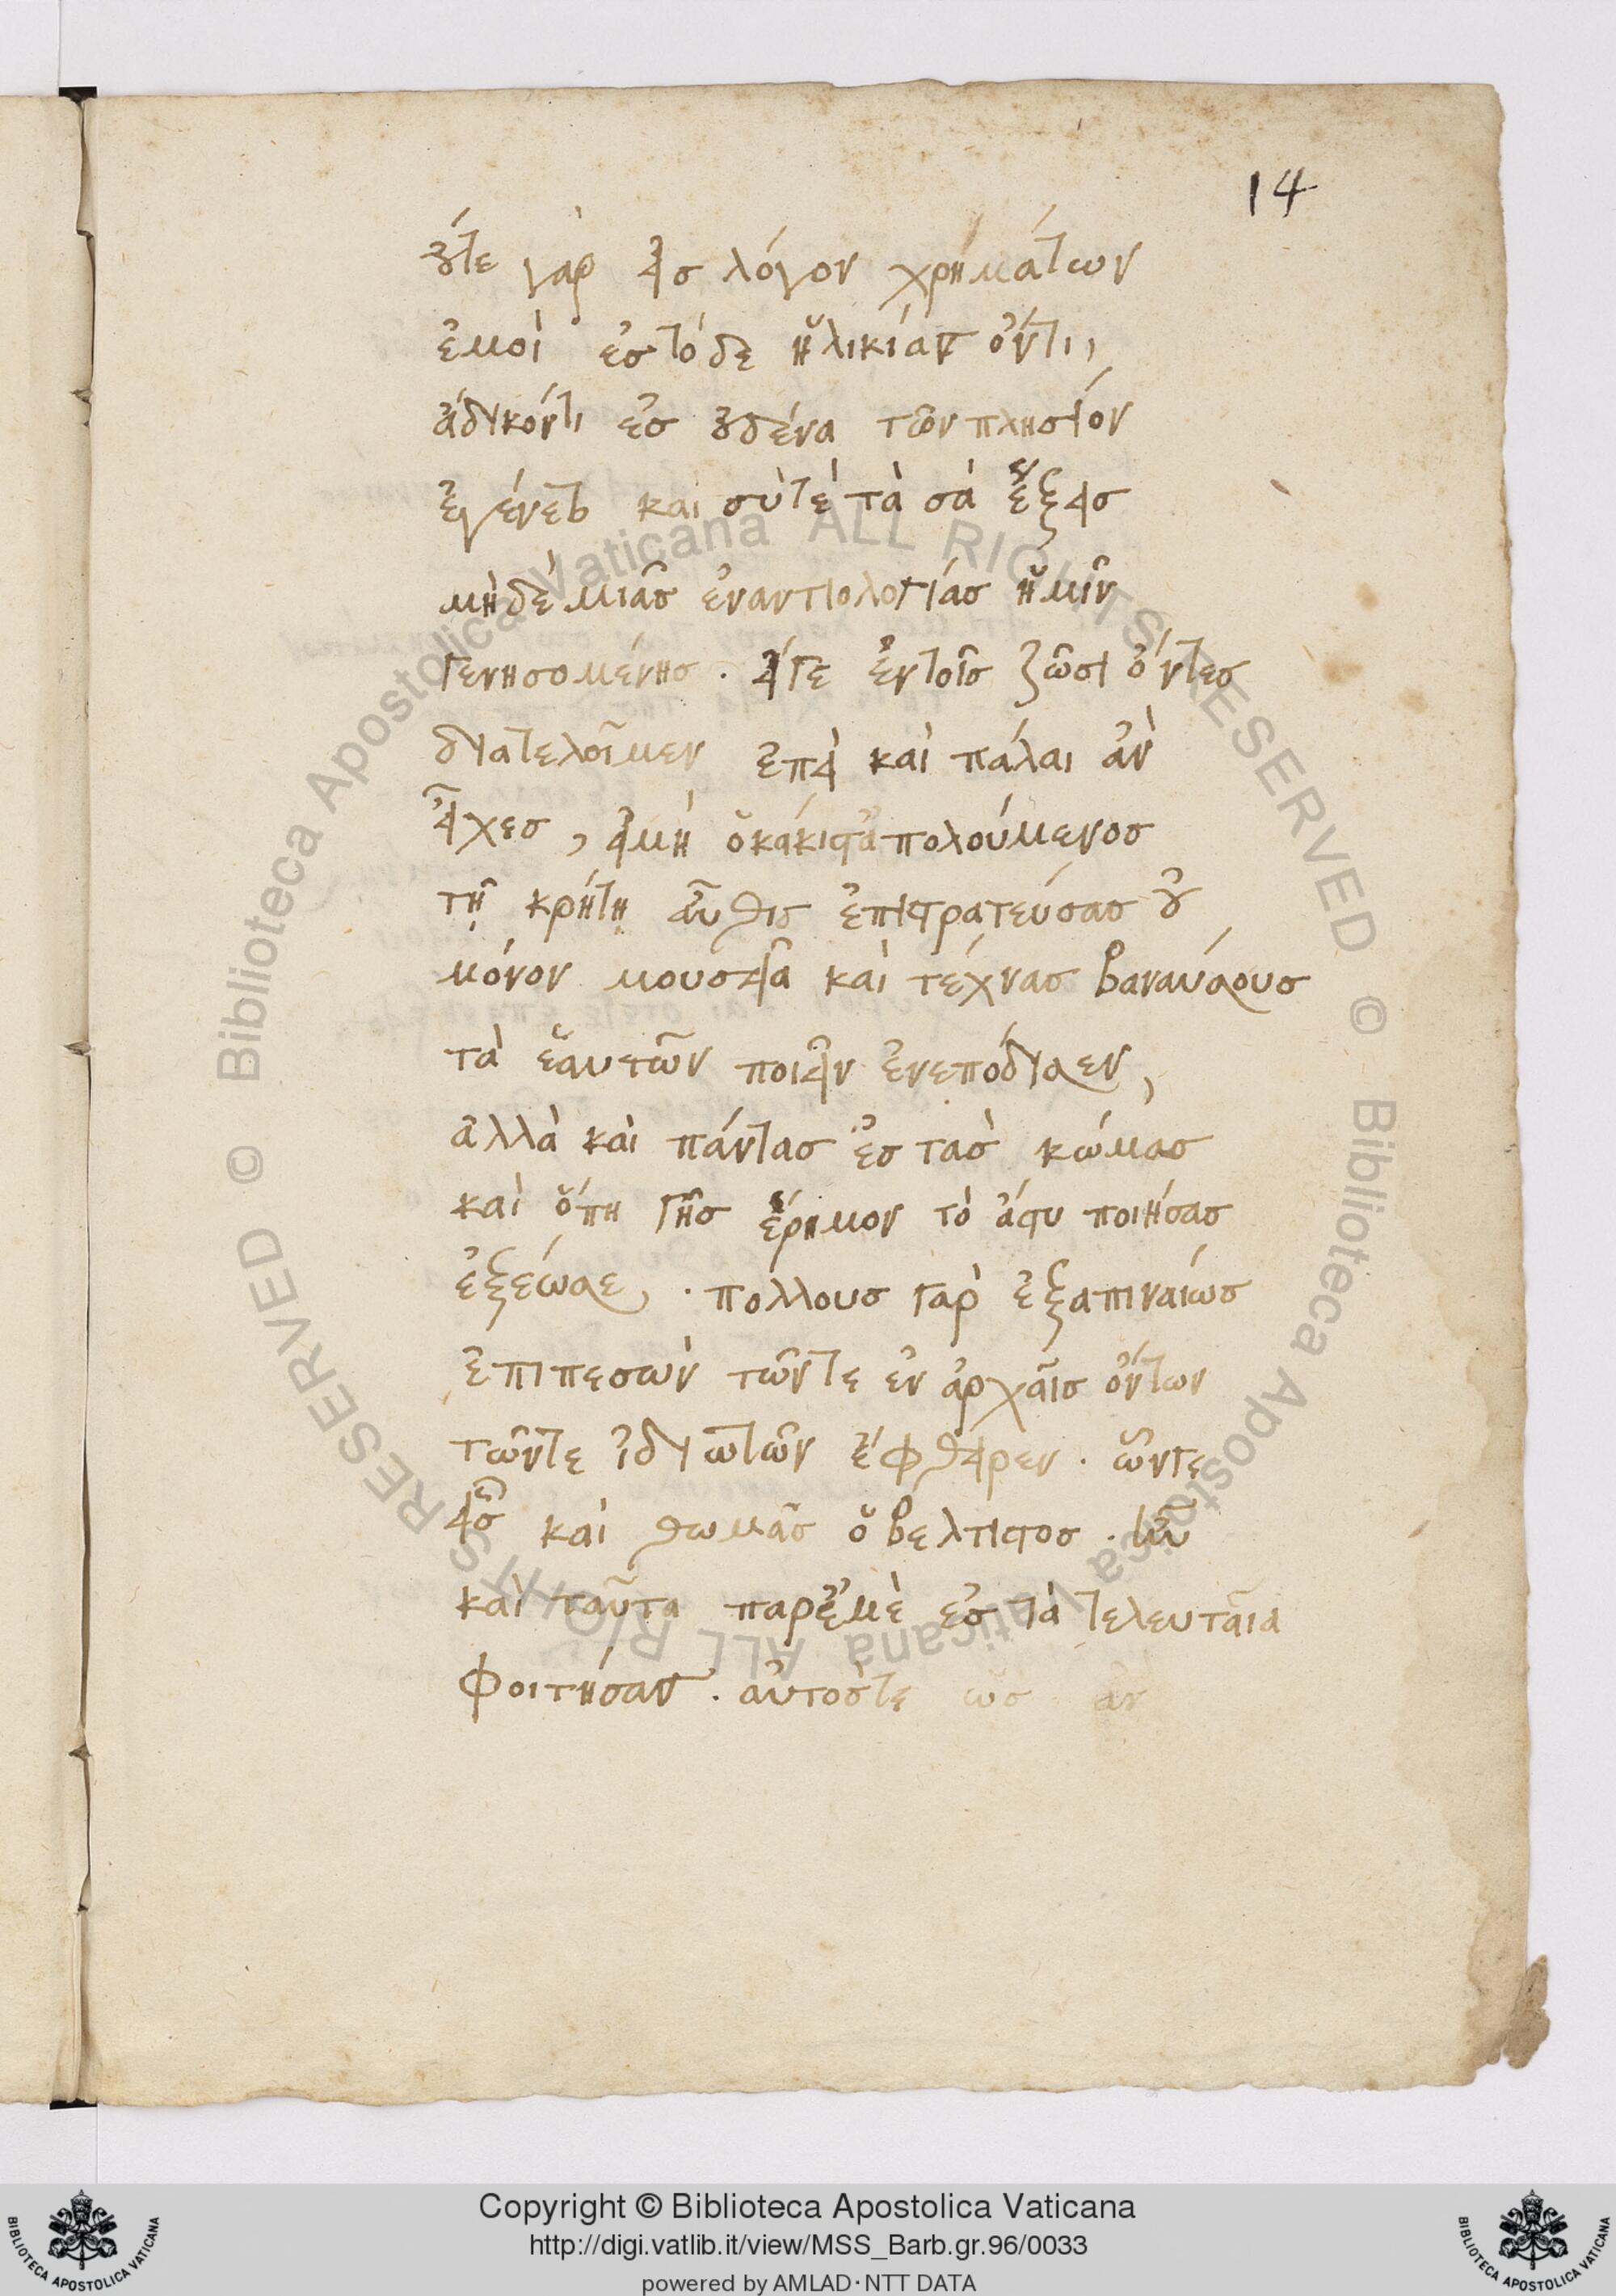 14
οὔτε γὰρ εἰς λόγον χρημάτων
ἐμοὶ ἐς τόδε ἡλικίας ὄντι,
ἄδικόν τι ἐς οὐδένα τῶν πλησίον
ἐγένετο καὶ σύ τε τὰ σὰ ἕξεις
μηδὲ μιᾶς ἐναντιολογίας ἡμῖν
γενησομένης. εἴγε ἐν τοῖς ζῶσι ὄντες
διατελοῖμεν ἐπεὶ καὶ πάλαι ἂν
εἶχες, εἰ μὴ ὁ κάκιστ' ἀπολούμενος
τῇ κρήτῃ αὖθις ἐπιστρατεύσας οὐ
μόνον μουσεῖα καὶ τέχνας βαναύσους
τὰ ἑαυτῶν ποιεῖν ἐνεπόδισεν,
ἀλλὰ καὶ πάντας ἐς τὰς κώμας
καὶ ὅπη γῆς ἔρημον τὸ ἄστυ ποιήσας
ἐξέωσε. πολλοὺς γὰρ ἐξαπιναίως
ἐπιπεσὼν τῶν τε ἐν ἀρχαῖς ὄντων
τῶν τε ἰδιωτῶν ἔφθειρεν. ὧν γε
εἷς καὶ θωμᾶς ὁ βέλτιστος.
καὶ ταῦτα παρ' ἐμὲ ἐς τὰ τελευταῖα
φοιτήσας. αὐτός τε ὡς ἂν
Copyright © Biblioteca Apostolica Vaticana
http://digi.vatlib.it/view/MSS_Barb.gr.96/0033
powered by AMLAD · NTT DATA
BIBLIOTECA APOSTOLICA VATICANA
BIBLIOTECA APOSTOLICA VATICANA
© Biblioteca Apostolica Vaticana ALL RIGHTS RESERVED
© Biblioteca Apostolica Vaticana ALL RIGHTS RESERVED